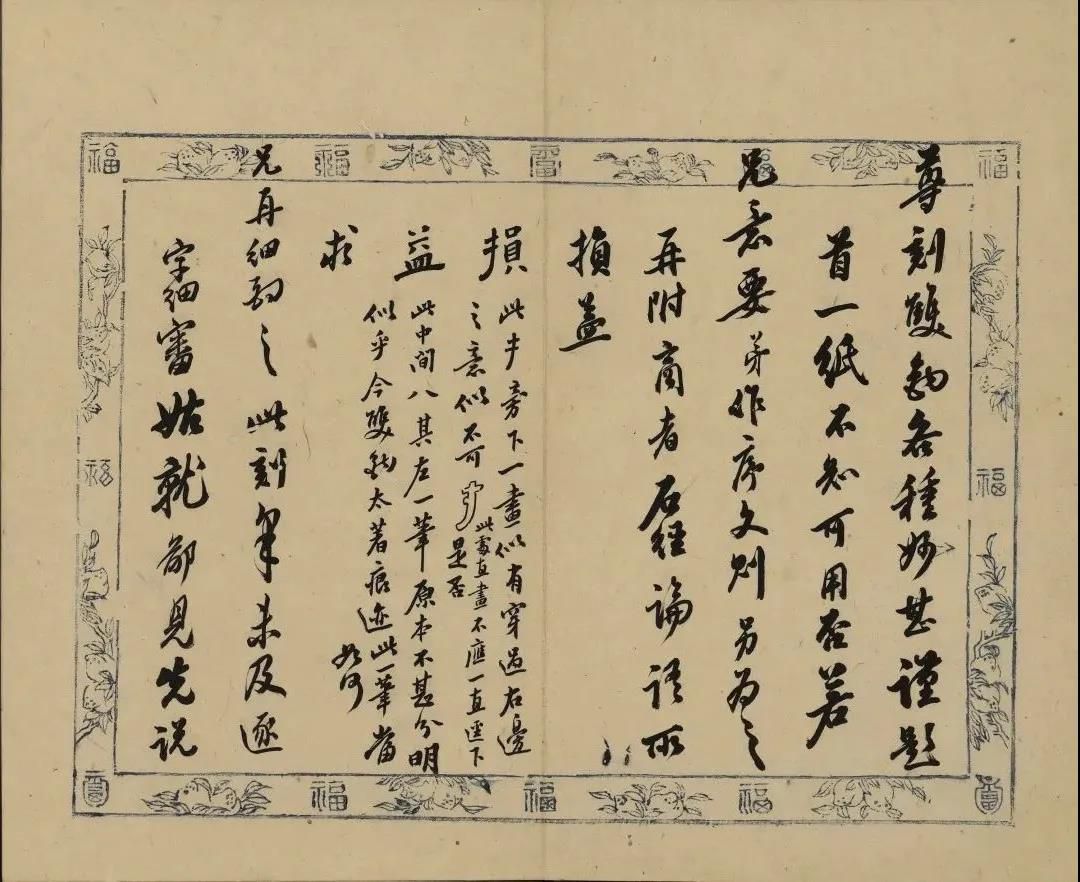 尊刻雙鉤各種妙甚謹題
首一紙不知可用否若
兄意要弟作序文則另為之
再附商者石經論語所
損益
損 此扌旁下一畫似有穿過右邊
之意似不可
此處直畫不應一直下
是否
益 此中間八其左一筆原本不甚分明
似乎今雙鉤太著痕迹此一筆當
如何
求
兄再細勘之此刻
未及逐
字細審姑就鄙見先説
福
福
福
福
福
福
福
福
福